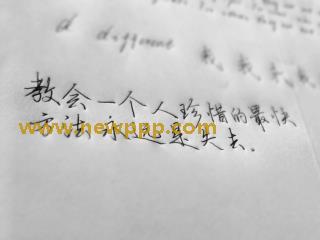 d different
我, 我, 我, 我
教会一个人珍惜的最快
方法永远是失去.
www.newppp.com